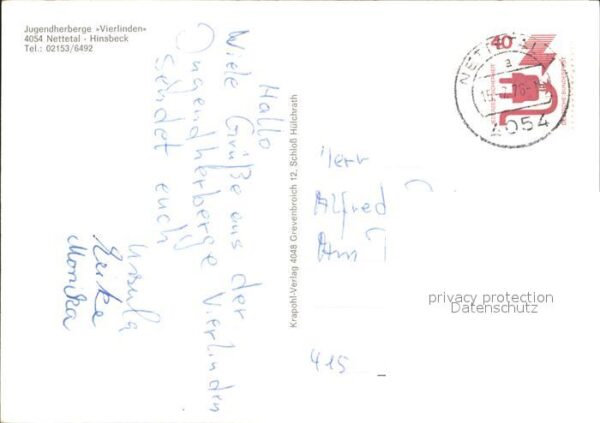 Jugendherberge »Vierlinden«
4054 Nettetal - Hinsbeck
Tel.: 02153/6492
Hallo
Viele Grüße aus der
Jugendherberge Vierlinden
sendet euch
Ursula
Monika
Krapohl-Verlag 4048 Grevenbroich 12, Schloß Hülchrath
40
DEUTSCHE BUNDESPOST
a
4054
Herr
Alfred
Am
415
privacy protection
Datenschutz